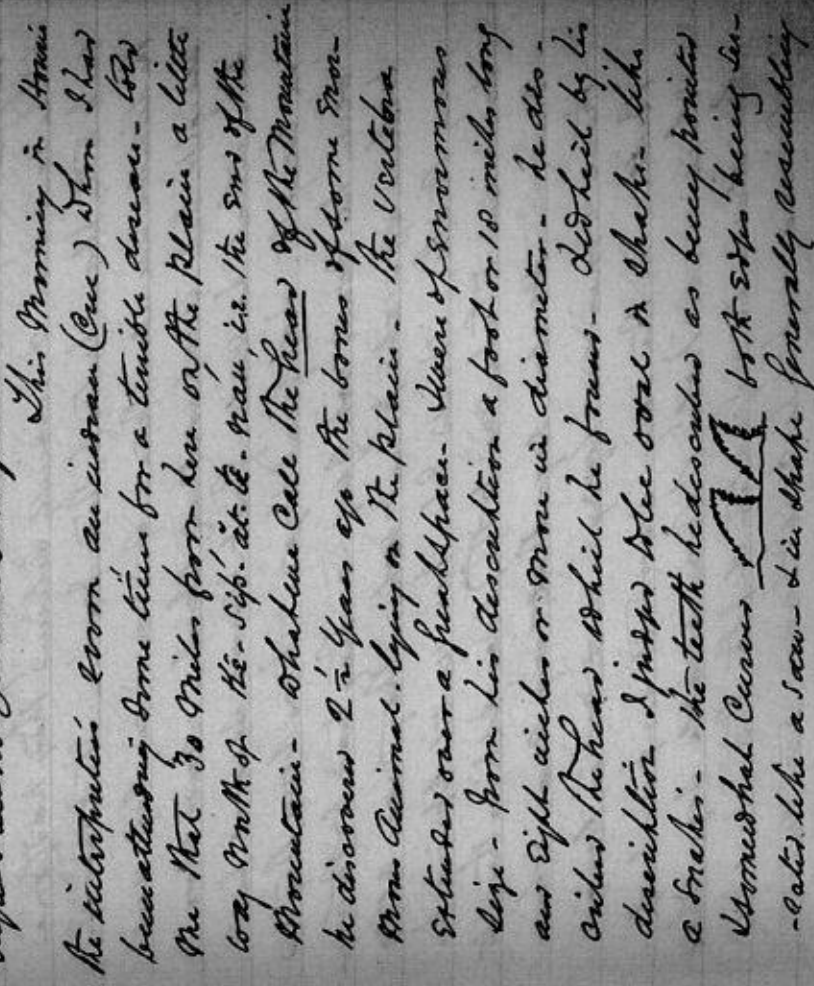 This Morning in Houris
the interpreters room an indian (Cree) whom I had
been attending some time for a terrible disease - told
me that 30 miles from here on the plain a little
way north of the
Mountain - what we call the head of the Mountain
he discovered 2½ years ago the bones of some enor-
mous animal. lying on the plain - the vertebra
extended over a great space - & were of enormous
size - from his description a foot or 18 inches long
and eight inches or more in diameter - he des-
cribed the head which he found - which by his
description I judged to be oval in shape - like
a snakes - the teeth he described as being pointed
& somewhat curved both edges being ser-
-rated like a saw - & in shape generally resembling